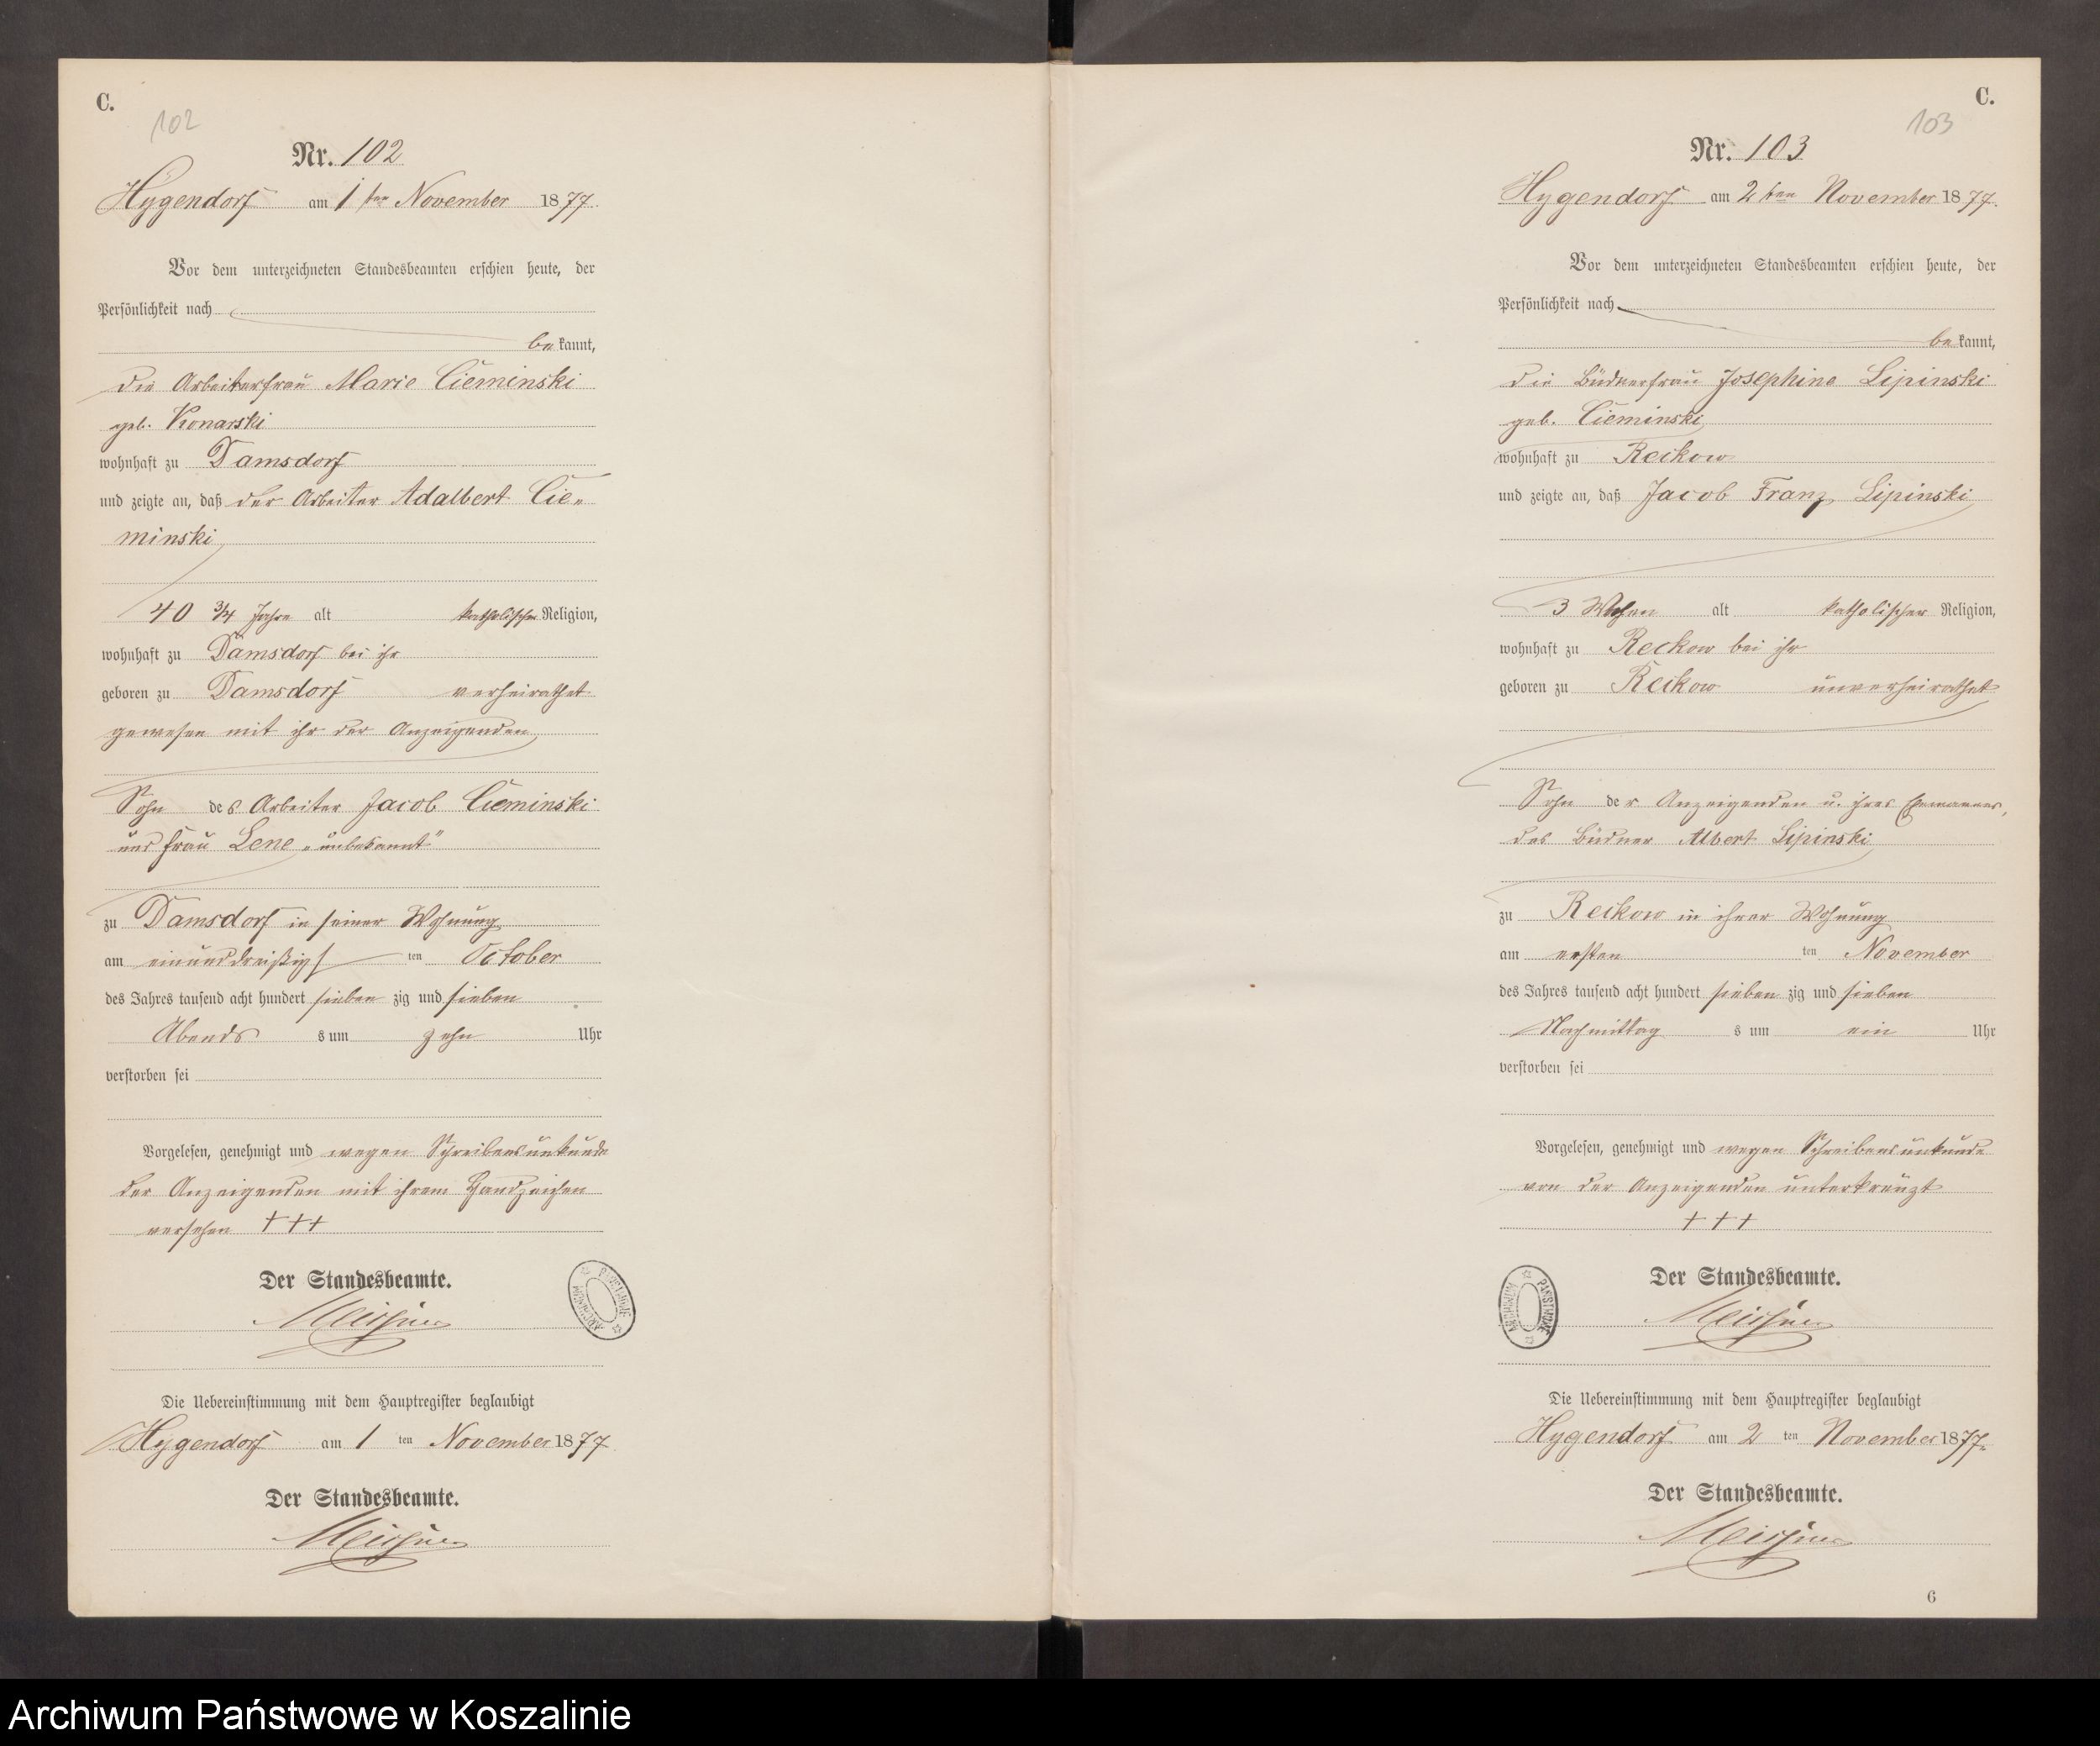 C.
102
Nr. 102
Hygendorf am 1ten November 1877.
Vor dem unterzeichneten Standesbeamten erschien heute, der
Persönlichkeit nach
bekannt,
die Arbeiterfrau Marie Cieminski
geb. Konarski
wohnhaft zu Damsdorf
und zeigte an, daß der Arbeiter Adalbert Cie-
minski
40 3/4 Jahre alt katholischer Religion,
wohnhaft zu Damsdorf bei ihr
geboren zu Damsdorf verheirathet
gewesen mit ihr der Anzeigenden
Sohn des Arbeiter Jacob Cieminski
und Frau Lene „unbekannt"
zu Damsdorf in seiner Wohnung
am einunddreißigsten October
des Jahres tausend acht hundert siebenzig und sieben
Abends um zehn Uhr
verstorben sei
Vorgelesen, genehmigt und wegen Schreibensunkunde
der Anzeigenden mit ihrem Handzeichen
versehen +++
Der Standesbeamte.
ARCHIWUM PAŃSTWOWE
Die Uebereinstimmung mit dem Hauptregister beglaubigt
Hygendorf am 1ten November 1877
Der Standesbeamte.
C.
103
Nr. 103
Hygendorf am 2ten November 1877.
Vor dem unterzeichneten Standesbeamten erschien heute, der
Persönlichkeit nach
bekannt,
die Büdnerfrau Josephine Lipinski
geb. Cieminski
wohnhaft zu Reckow
und zeigte an, daß Jacob Franz Lipinski
3 Wochen alt katholischer Religion,
wohnhaft zu Reckow bei ihr
geboren zu Reckow unverheirathet
Sohn der Anzeigenden u. ihres Ehemannes,
des Büdner Albert Lipinski
zu Reckow in ihrer Wohnung
am ersten ten November
des Jahres tausend acht hundert siebenzig und sieben
Nachmittags um ein Uhr
verstorben sei
Vorgelesen, genehmigt und wegen Schreibensunkunde
von der Anzeigenden unterkreuzt
+++
Der Standesbeamte.
ARCHIWUM PAŃSTWOWE
Die Uebereinstimmung mit dem Hauptregister beglaubigt
Hygendorf am 2ten November 1877.
Der Standesbeamte.
6
Archiwum Państwowe w Koszalinie